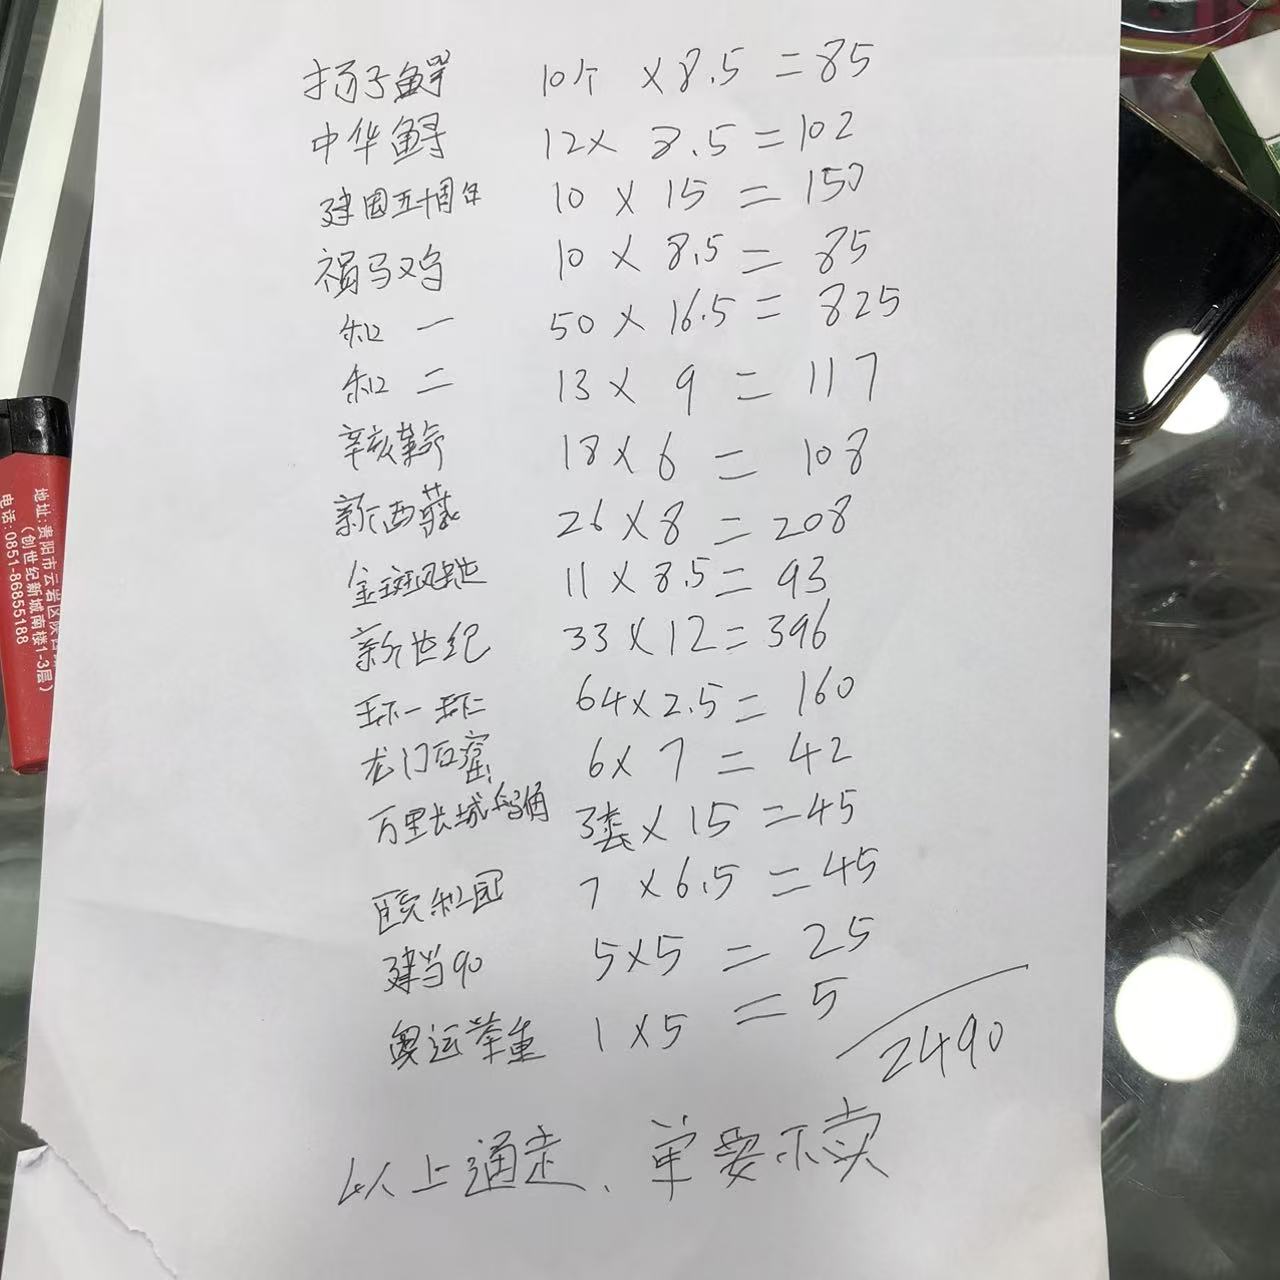 扬子鳄 10个 ×8.5 =85
中华鲟 12× 8.5=102
建国五十周年 10 × 15 = 150
褐马鸡 10 × 8.5 = 85
和一 50 × 16.5 = 825
和二 13 × 9 = 117
辛亥革命 18 × 6 = 108
新西藏 26 × 8 = 208
金斑凤蝶 11 × 8.5 = 93
新世纪 33 × 12 = 396
环一环二 64 × 2.5 = 160
龙门石窟 6 × 7 = 42
万里长城 3套 × 15 = 45
和团 7 × 6.5 = 45
建党90 5×5 = 25
奥运举重 1 × 5 = 5
2490
以上通走、单要不卖
地址:贵阳市云岩区
(创世纪新城南楼1-3层)
电话:0851-86855188